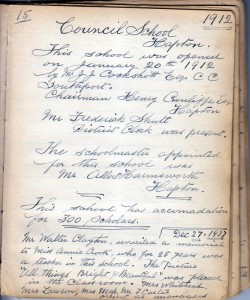 15
1912
Council School
Hapton.
This school was opened
on January 20th 1912
by Mr J. J. Cockshott Esq. C.C
Southport.
Chairman Henry Cunliffe Esq
Hapton
Mr Frederick Shutt
District Clerk was present.
The schoolmaster appointed
for this school was
Mr Albert Harmsworth
Hapton.
This school has accomadation
for 300 Scholars.
Dec 27-1937
Mr Walter Clayton, unveiled a memorial
to Miss Annie Cook, who for 25 years was
a teacher in this school. The picture
"All Things Bright & Beautiful" was placed
in the Classroom. Mrs Whitehead
Mrs Lawson, Mrs High, Mr J Catlow
managers